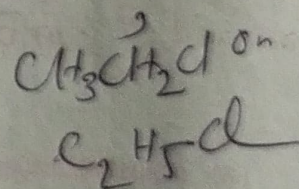 CH₃CH₂Cl on
C₂H₅Cl